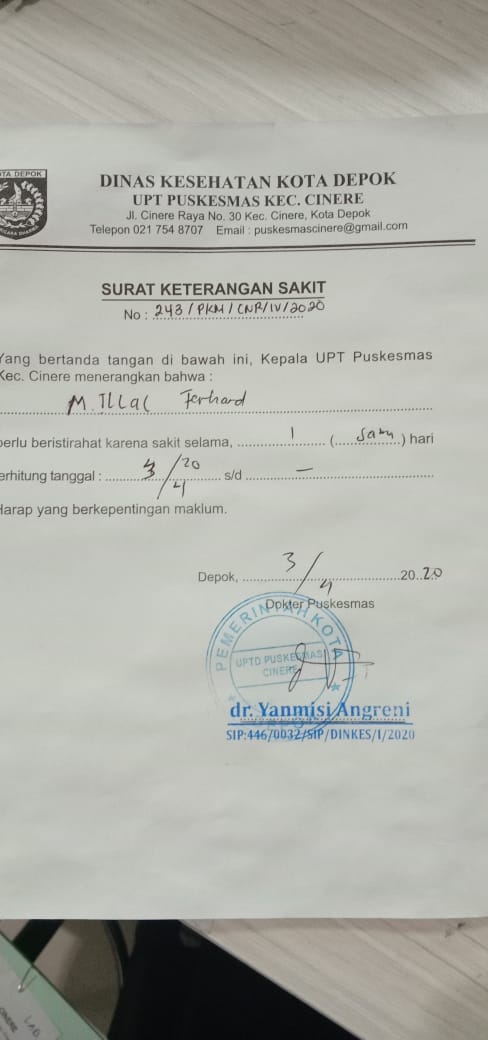 TA DEPOK
DINAS KESEHATAN KOTA DEPOK
UPT PUSKESMAS KEC. CINERE
Jl. Cinere Raya No. 30 Kec. Cinere, Kota Depok
Telepon 021 754 8707 Email : puskesmascinere@gmail.com
SURAT KETERANGAN SAKIT
No : 243 / PKM / CNR / IV / 2020
Yang bertanda tangan di bawah ini, Kepala UPT Puskesmas
Kec. Cinere menerangkan bahwa :
M. Ferhard
perlu beristirahat karena sakit selama, 1 (satu) hari
erhitung tanggal : 3/4 20 s/d —
Harap yang berkepentingan maklum.
Depok, 3/4 2020
Dokter Puskesmas
PEMERINTAH KOTA
UPTD PUSKESMAS
CINERE
dr. Yanmisi Angreni
SIP:446/0032/SIP/DINKES/I/2020
LAB